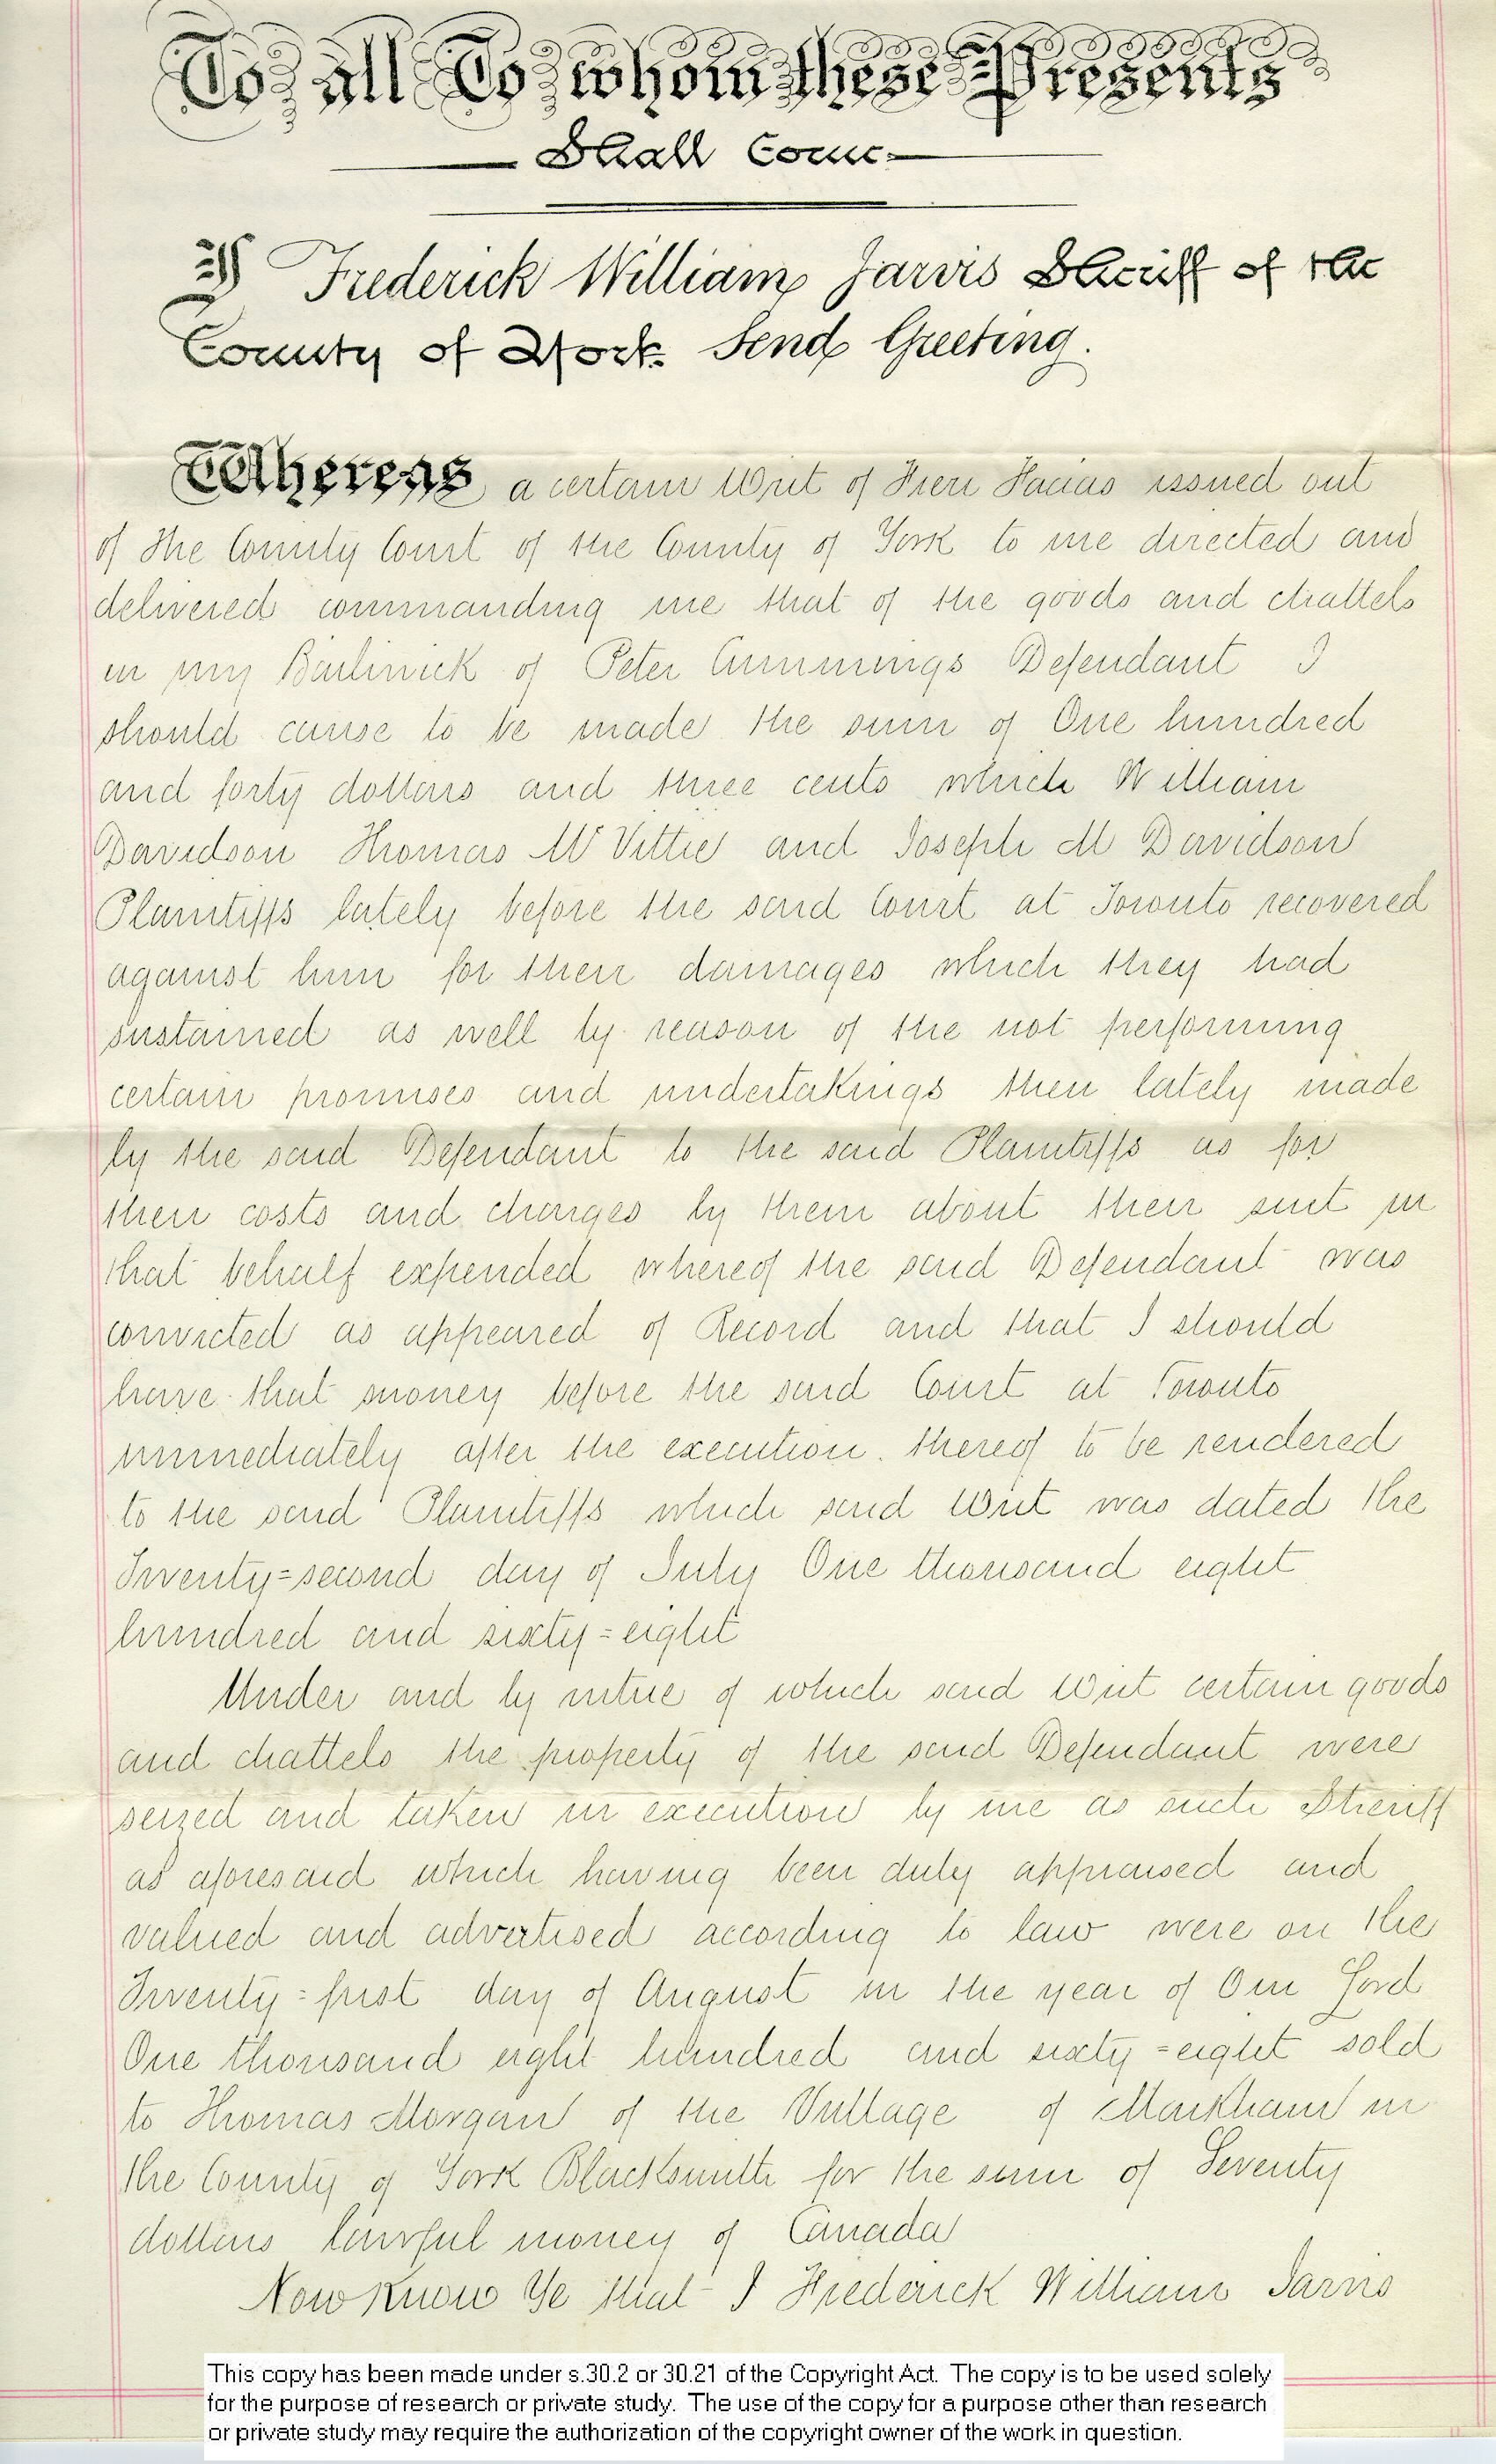 To all To whom these Presents
Shall Come
I Frederick William Jarvis Sheriff of the
County of York Send Greeting.
Whereas a certain Writ of Fieri Facias issued out
of the County Court of the County of York to me directed and
delivered commanding me that of the goods and chattels
in my Bailiwick of Peter Cummings Defendant I
should cause to be made the sum of One hundred
and forty dollars and three cents which William
Davidson Thomas McVittie and Joseph M Davidson
Plaintiffs lately before the said Court at Toronto recovered
against him for their damages which they had
sustained as well by reason of the not performing
certain promises and undertakings then lately made
by the said Defendant to the said Plaintiffs as for
their costs and charges by them about their suit in
that behalf expended whereof the said Defendant was
convicted as appeared of Record and that I should
have that money before the said Court at Toronto
immediately after the execution thereof to be rendered
to the said Plaintiffs which said Writ was dated the
Twenty=second day of July One thousand eight
hundred and sixty=eight
Under and by virtue of which said Writ certain goods
and chattels the property of the said Defendant were
seized and taken in execution by me as such Sheriff
as aforesaid which having been duly appraised and
valued and advertised according to law were on the
Twenty=first day of August in the year of Our Lord
One thousand eight hundred and sixty=eight sold
to Thomas Morgan of the Village of Markham in
the County of York Blacksmith for the sum of Seventy
dollars lawful money of Canada
Now Know Ye that I Frederick William Jarvis
This copy has been made under s.30.2 or 30.21 of the Copyright Act. The copy is to be used solely
for the purpose of research or private study. The use of the copy for a purpose other than research
or private study may require the authorization of the copyright owner of the work in question.